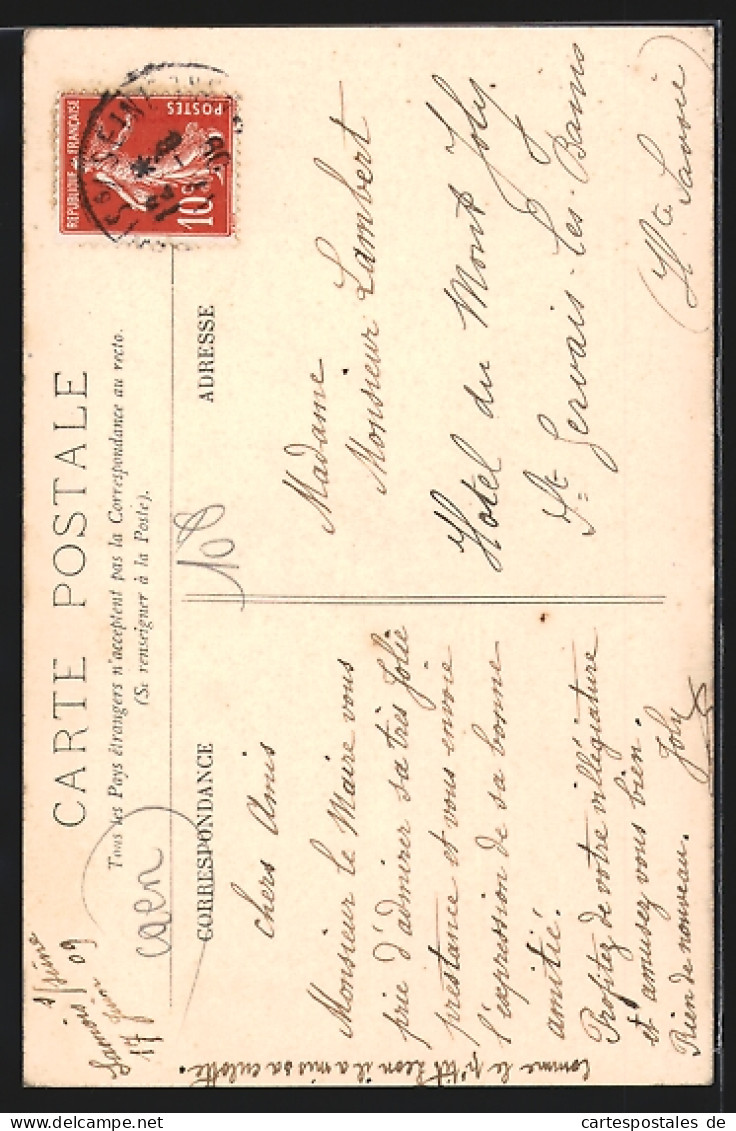 CARTE POSTALE
Tous les Pays étrangers n'acceptent pas la Correspondance au recto.
(Se renseigner à la Poste).
CORRESPONDANCE
ADRESSE
REPUBLIQUE FRANÇAISE
POSTES
10c
Samois s/Seine
17 Juin 09
caen
100
Chers Amis
Monsieur le Maire vous
prie d'admirer sa très jolie
prestance et vous envoie
l'expression de sa bonne
amitié.
Profitez de votre villégiature
et amusez vous bien.
Rien de nouveau. Joly
Comme le p'tit Léon il a mis sa culotte.
Madame
Monsieur Lambert
Hotel du Mont Joly
St Gervais-les-Bains
(Hte Savoie)
oldthing.de
cartespostales.de